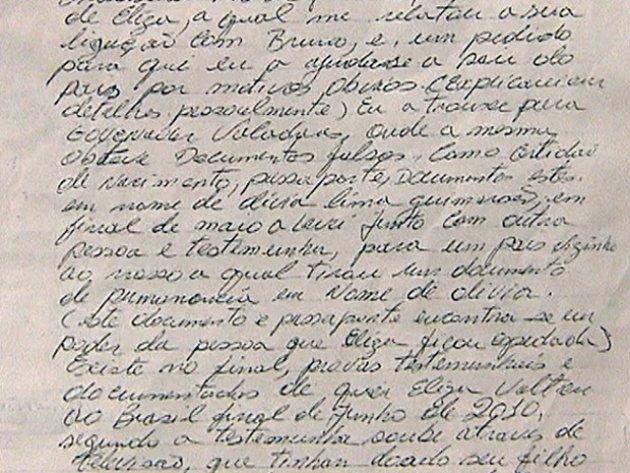 de Eliza, a qual me relatou a sua
ligação com Bruno, e, um pedido
para que eu a ajudasse a sair do
pais por motivos obvios. (explicarei em
detalhes pessoalmente) Eu a trouxe para
Governador Valadares, onde a mesma
obteve Documentos falsos. Como certidão
de Nascimento, passaporte, Documentos estes
em nome de olivia lima guimarães, em
final de maio a levei junto com outra
pessoa e testemunha, para um pais vizinho
ao nosso a qual tirou um documento
de permanencia em Nome de olivia.
(este documento e passaporte encontra-se em
poder da pessoa que Eliza ficou ospedada)
Existe no final, provas testemunhais e
documentados de que Eliza Voltou
ao Brasil final de Junho de 2010,
segundo a testemunha soube através de
televisão, que tinham doado seu filho